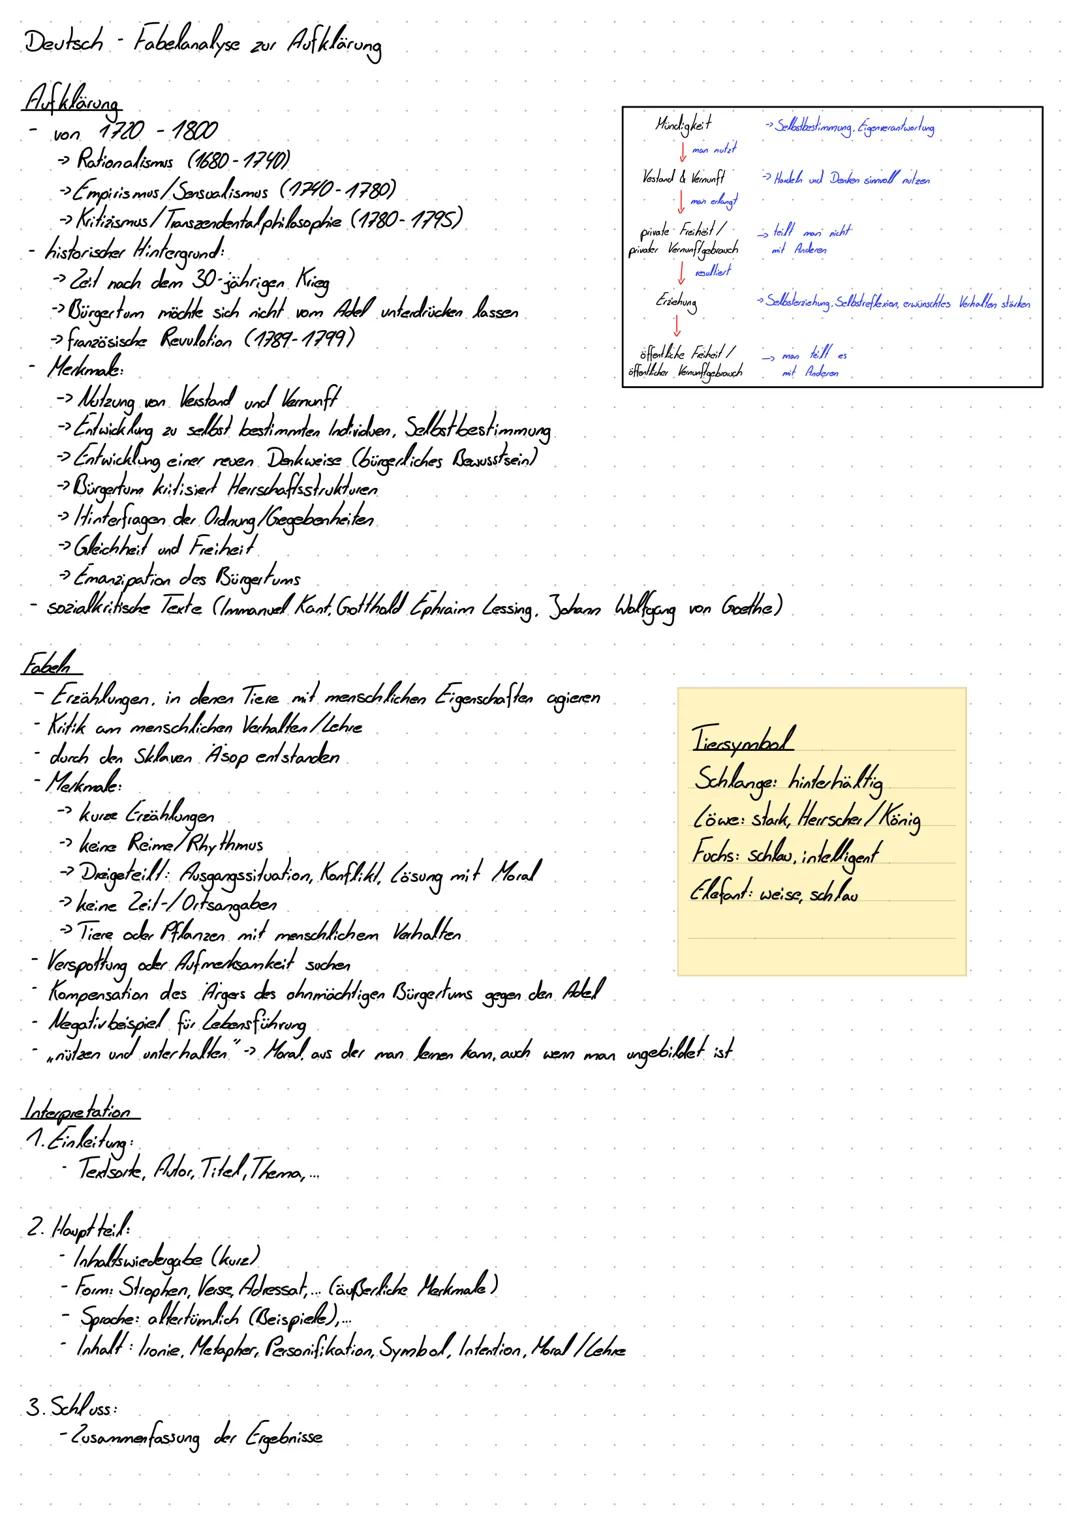 Deutsch - Fabelanalyse zur Aufklärung
Aufklärung
- von 1720 - 1800
-> Rationalismus (1680-1740)
-> Empirismus/Sensualismus (1740-1780)
-> Kritizismus/Transzendentalphilosophie (1780-1795)
- historischer Hintergrund:
-> Zeit nach dem 30-jährigen Krieg
-> Bürgertum möchte sich nicht vom Adel unterdrücken lassen
-> französische Revulotion (1789-1799)
- Merkmale:
-> Nutzung von Verstand und Vernunft
-> Entwicklung zu selbst bestimmten Individuen, Selbstbestimmung
-> Entwicklung einer neuen Denkweise (bürgerliches Bewusstsein)
-> Bürgertum kritisiert Herrschaftsstrukturen
-> Hinterfragen der Ordnung/Gegebenheiten
-> Gleichheit und Freiheit
-> Emanzipation des Bürgertums
- sozialkritische Texte (Immanuel Kant, Gotthold Ephraim Lessing, Johann Wolfgang von Goethe)
Mündigkeit -> Selbstbestimmung, Eigenverantwortung
↓ man nutzt
Verstand & Vernunft -> Handeln und Denken sinnvoll nutzen
↓ man erlangt
private Freiheit / -> teilt man nicht
privater Vernunftgebrauch mit Anderen
↓ resultiert
Erziehung -> Selbsterziehung, Selbstreflexion, erwünschtes Verhalten stärken
↓
öffentliche Freiheit / -> man teilt es
öffentlicher Vernunftgebrauch mit Anderen
Fabeln
- Erzählungen, in denen Tiere mit menschlichen Eigenschaften agieren
- Kritik am menschlichen Verhalten/Lehre
- durch den Sklaven Äsop entstanden
- Merkmale:
-> kurze Erzählungen
-> keine Reime/Rhythmus
-> Dreigeteilt: Ausgangssituation, Konflikt, Lösung mit Moral
-> keine Zeit-/Ortsangaben
-> Tiere oder Pflanzen mit menschlichem Verhalten
- Verspottung oder Aufmerksamkeit suchen
- Kompensation des Ärgers des ohnmächtigen Bürgertums gegen den Adel
- Negativbeispiel für Lebensführung
- „nützen und unterhalten" -> Moral, aus der man lernen kann, auch wenn man ungebildet ist
Tiersymbol
Schlange: hinterhältig
Löwe: stark, Herrscher/König
Fuchs: schlau, intelligent
Elefant: weise, schlau
Interpretation
1. Einleitung:
- Textsorte, Autor, Titel, Thema,...
2. Hauptteil:
- Inhaltswiedergabe (kurz)
- Form: Strophen, Verse, Adressat,... (äußerliche Merkmale)
- Sprache: altertümlich (Beispiele),...
- Inhalt: Ironie, Metapher, Personifikation, Symbol, Intention, Moral/Lehre
3. Schluss:
- Zusammenfassung der Ergebnisse